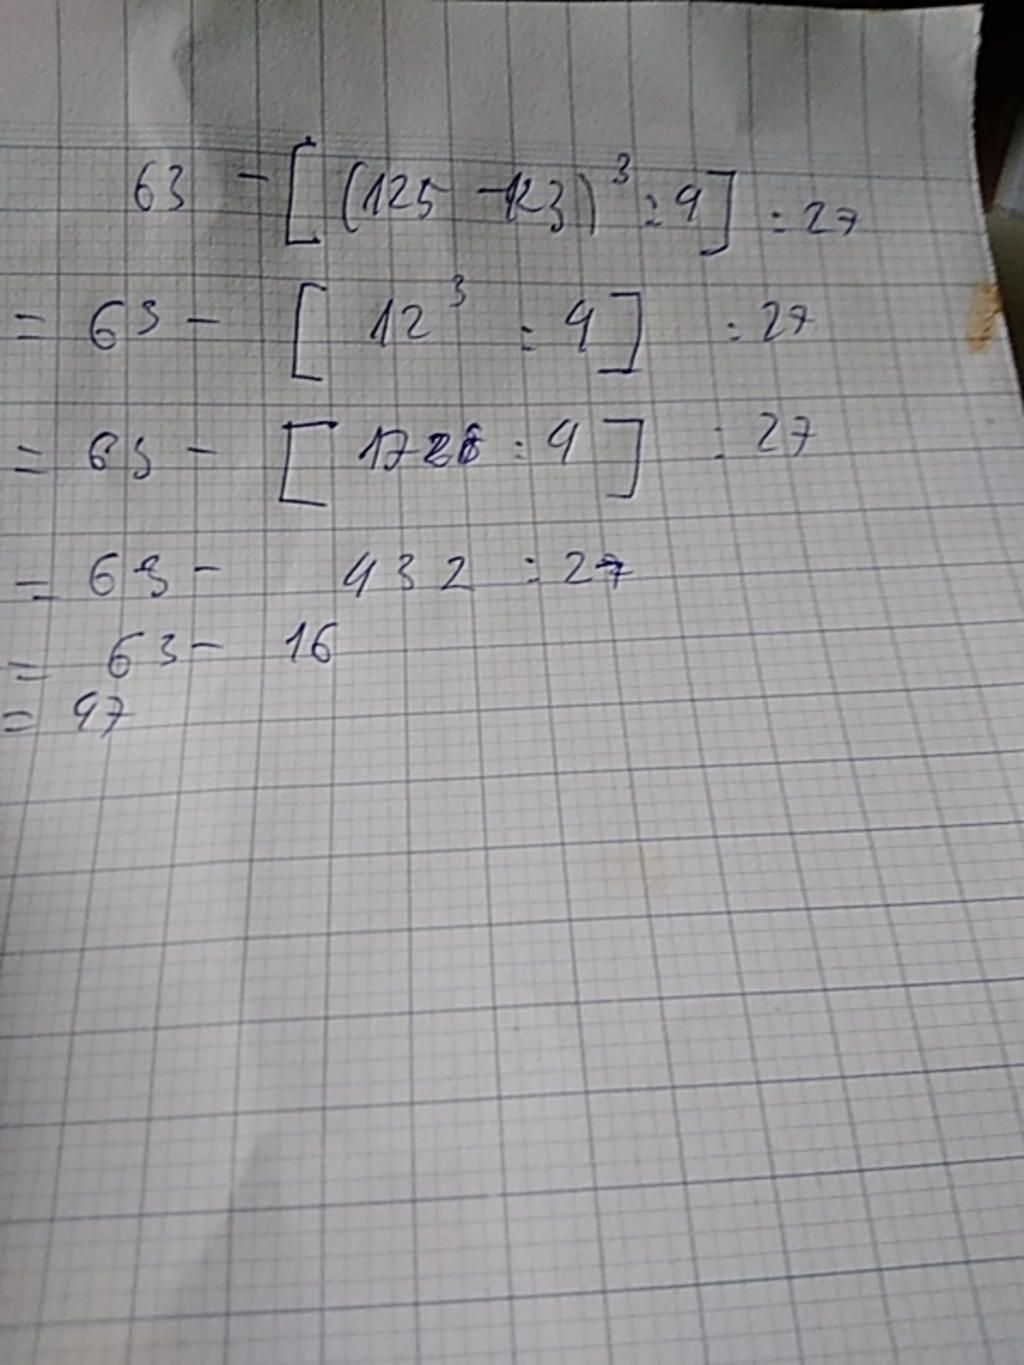 63 - [ (125 - 123)³ : 4] : 27
= 63 - [ 12³ : 4] : 27
= 63 - [ 1728 : 4 ] : 27
= 63 - 432 : 27
= 63 - 16
= 47